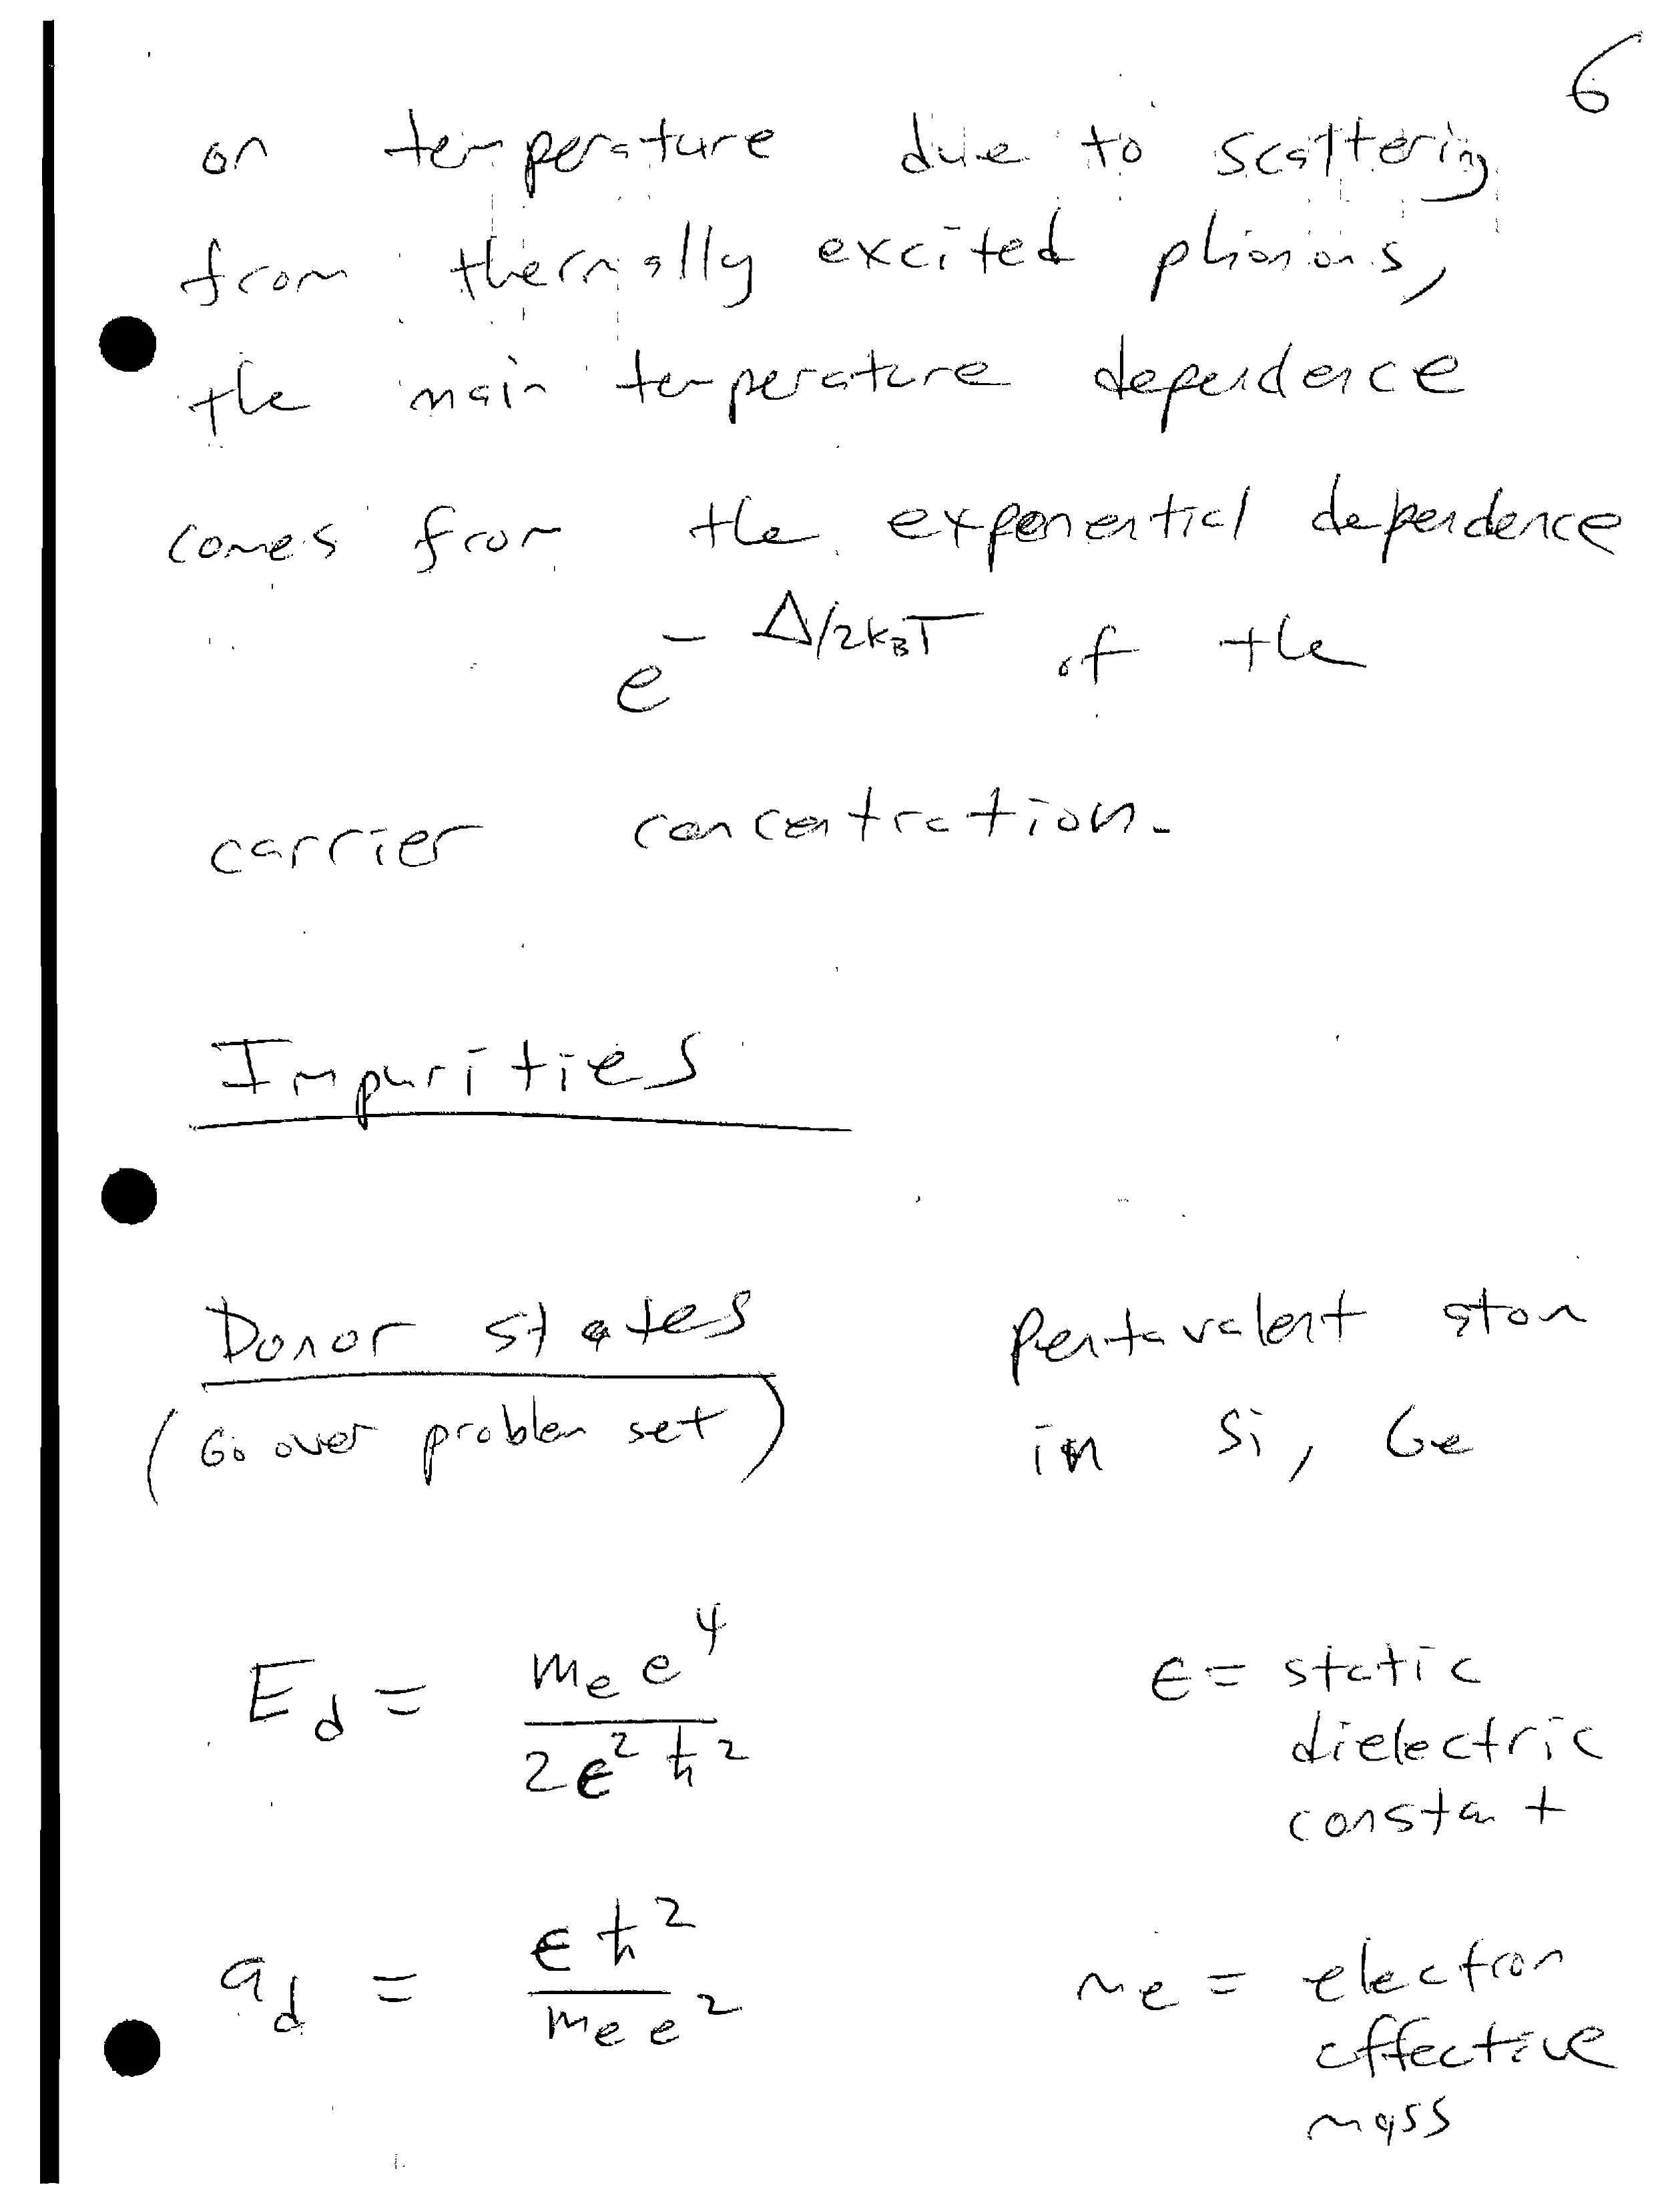 6
on temperature due to scattering
from thermally excited phonons,
the main temperature dependence
comes from the exponential dependence
e^{-Δ/2k_BT} of the
carrier concentration.
Impurities
Donor states pentavalent atom
(Go over problem set) in Si, Ge
E_d = \frac{m_e e^4}{2ϵ^2 ħ^2} ϵ = static
dielectric
constant
a_d = \frac{ϵ ħ^2}{m_e e^2} m_e = electron
effective
mass